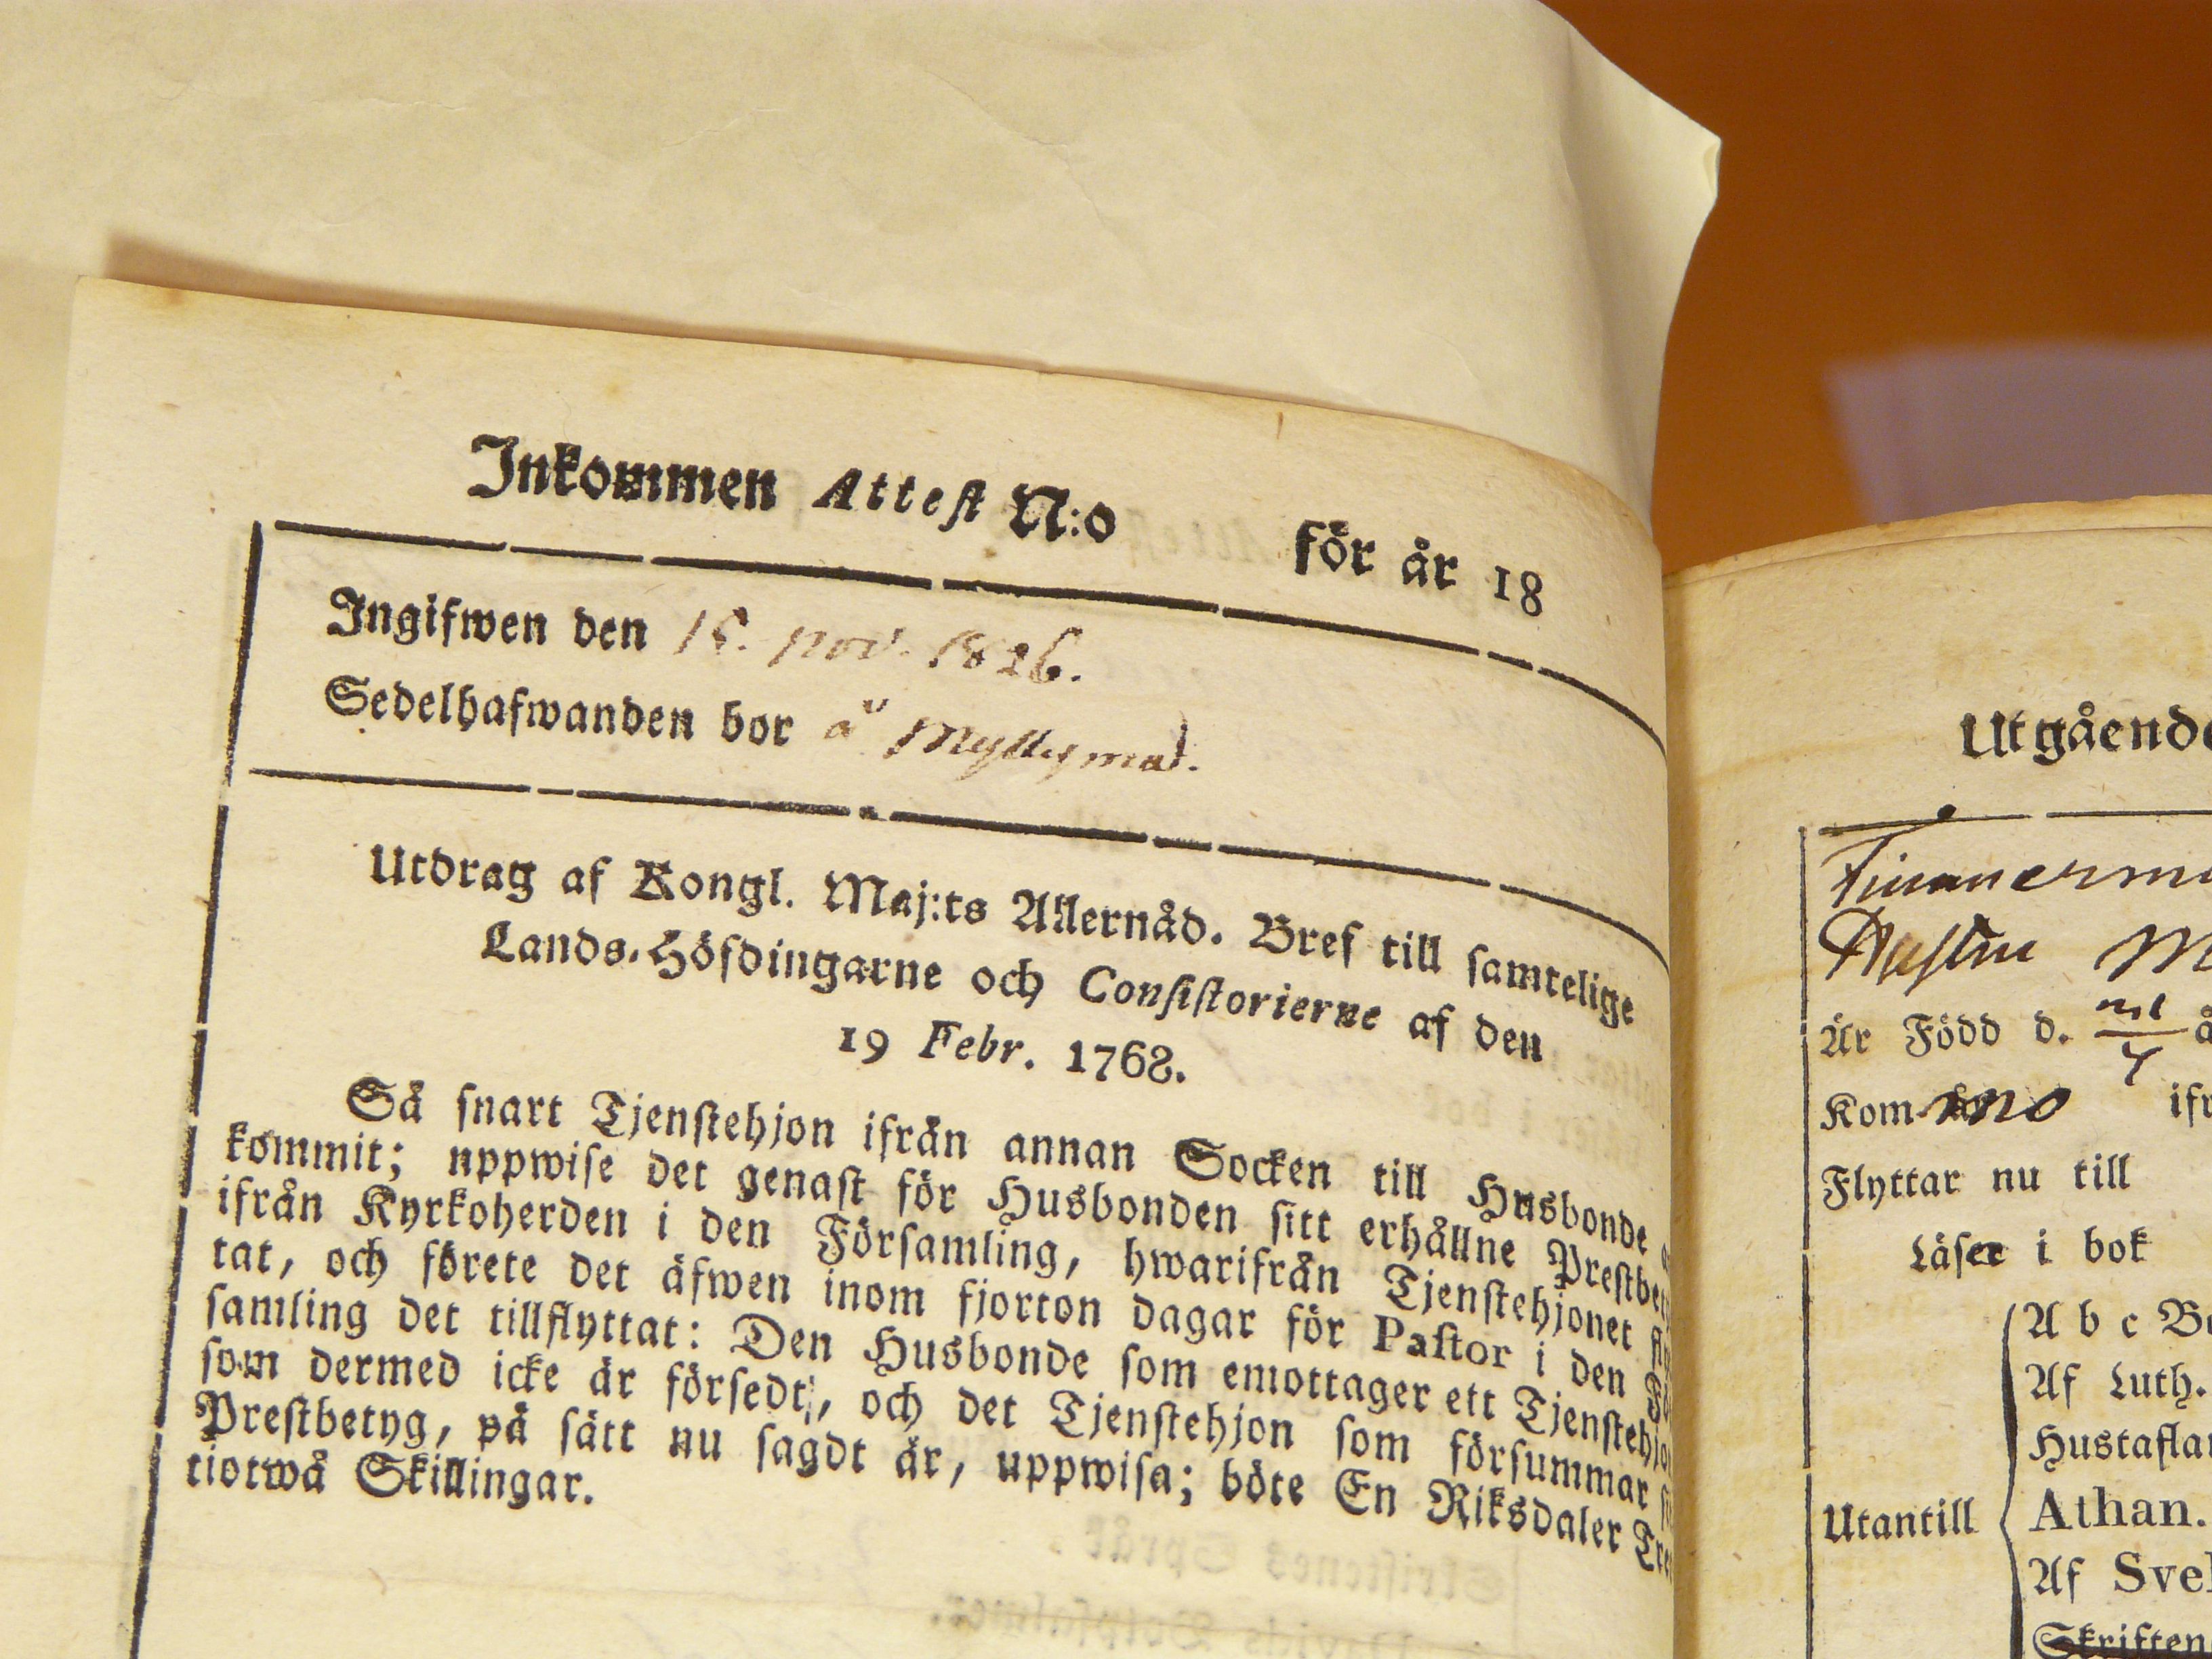 Inkommen Attest N:o för år 18
Ingifwen den 15. nov. 1826.
Sedelhafwanden bor å Myllymä
Utdrag af Kongl. Maj:ts Allernåd. Bref till samtelige
Lands-Höfdingarne och Consistorierne af den
19 Febr. 1768.
Så snart Tjenstehjon ifrån annan Socken till Husbonde
kommit; uppwise det genast för Husbonden sitt erhållne Prestbe
ifrån Kyrkoherden i den Församling, hwarifrån Tjenstehjonet
tat, och förete det äfwen inom fjorton dagar för Pastor i den
samling det tillflyttat: Den Husbonde som emottager ett Tjenstehjo
som dermed icke är försedt, och det Tjenstehjon som försummar
Prestbetyg, på sätt nu sagdt är, uppwisa; böte En Riksdaler Tre
tiotwå Skillingar.
Utgående
Är Född d.
Kom ifr
Flyttar nu till
Läser i bok
Utantill
A b c Bo
Af Luth.
Hustaflan
Athan.
Af Sveb
Skriften